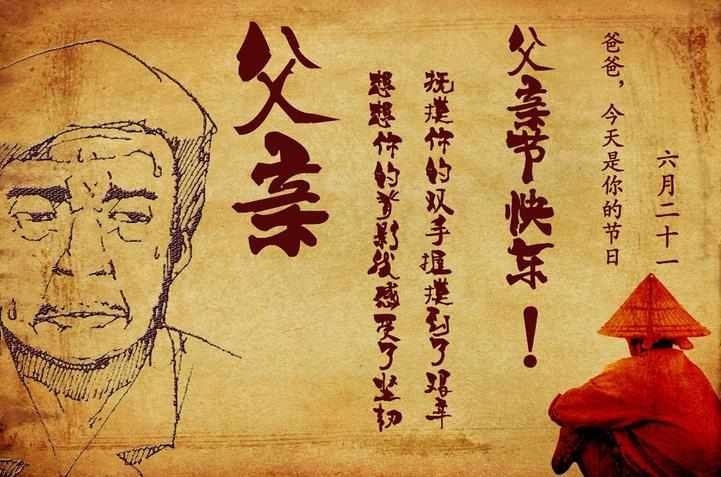 六月二十一
爸爸，今天是你的节日
父亲节快乐！
抚摸你的双手握摸到了艰辛
想想你的背影我感受了坚韧
父亲